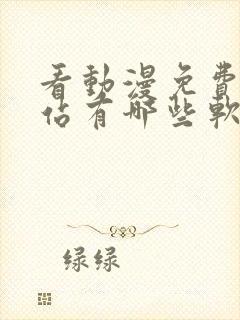 看動漫免費
佔有哪些軟
绿绿